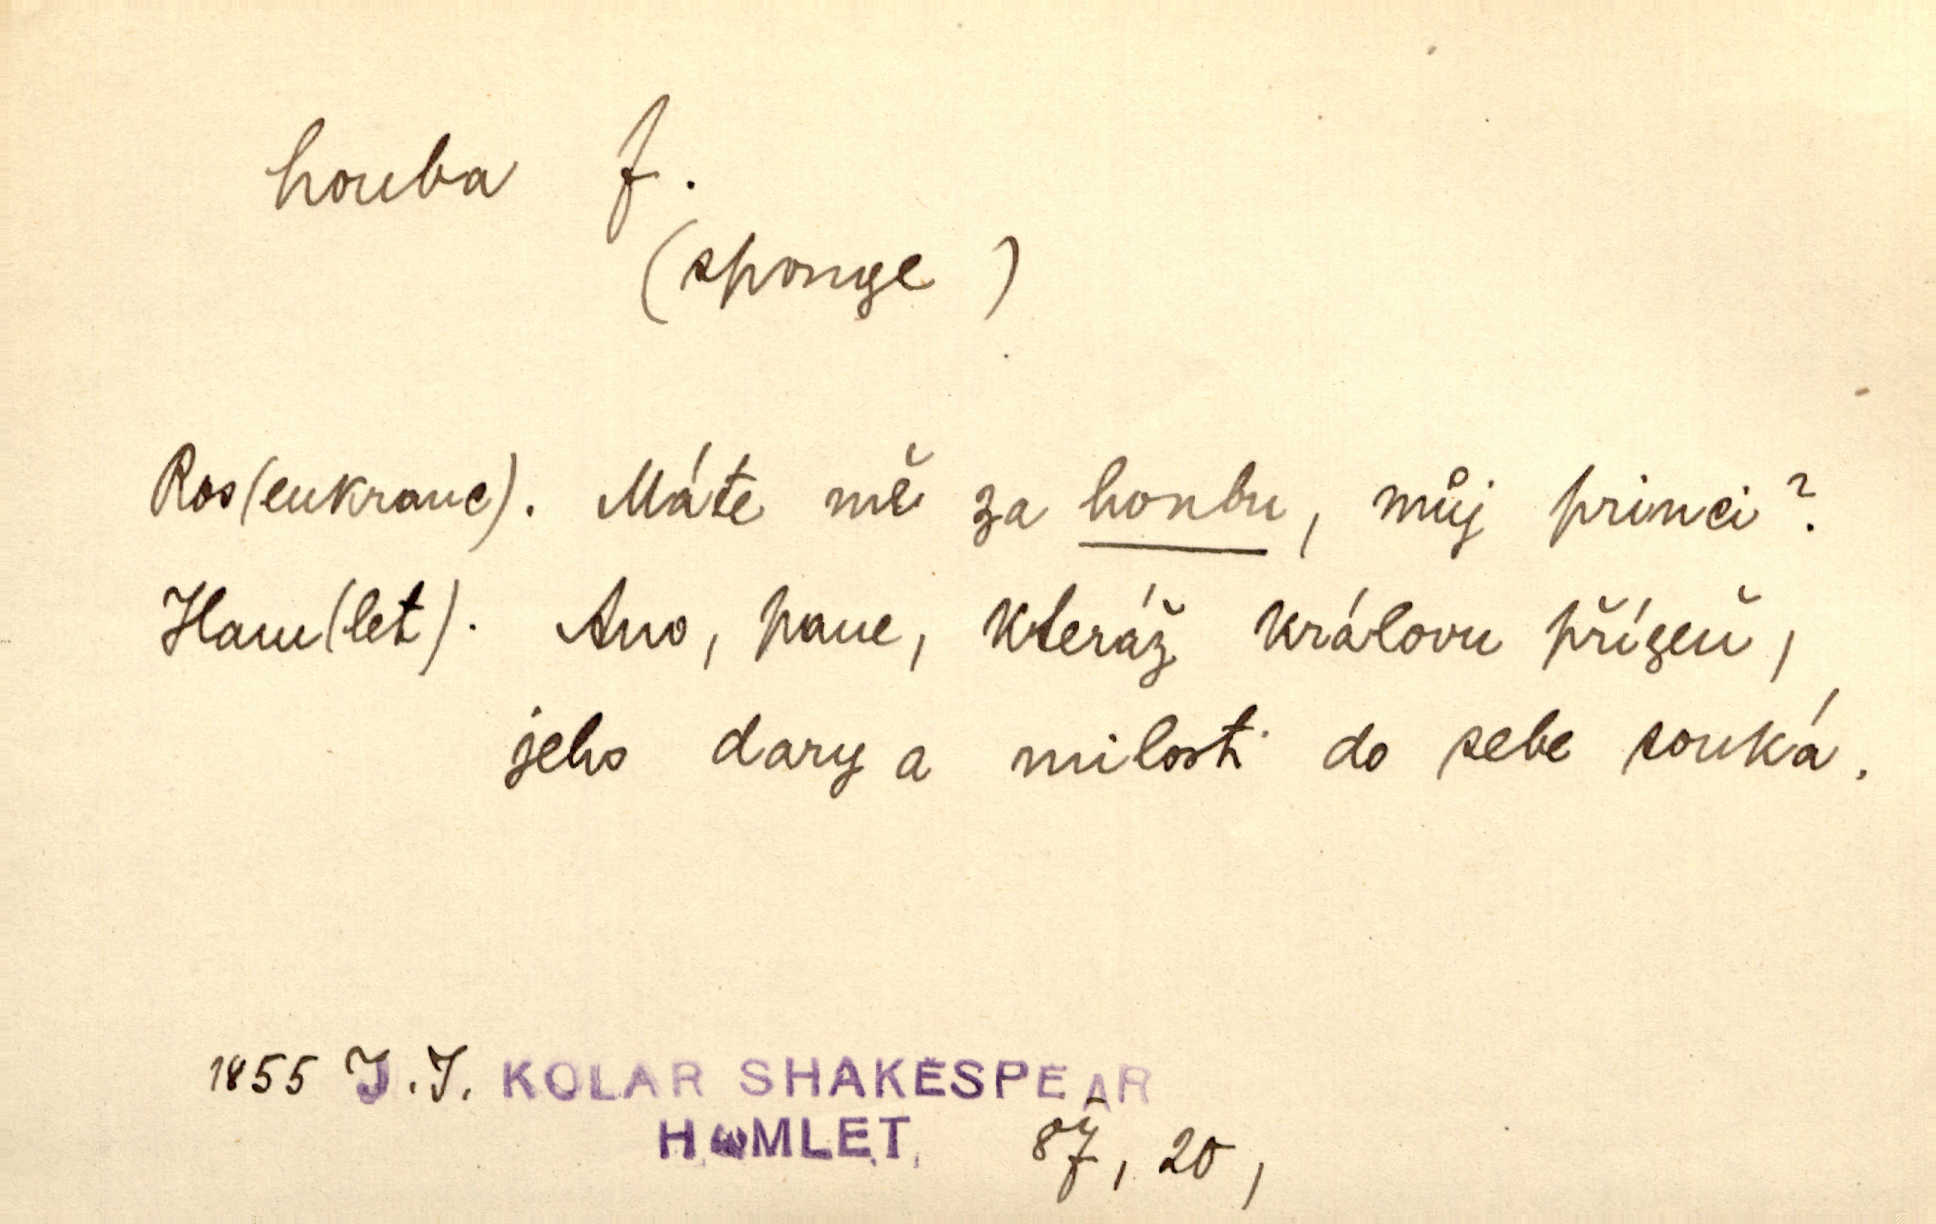 houba f.
(sponge)
Ros(enkranc). Máte mě za houbu, můj princi?
Ham(let). Ano, pane, kteráž královu přízeň,
jeho dary a milosti do sebe souká.
1855 J.J. KOLAR SHAKESPEAR
HAMLET 87, 20,